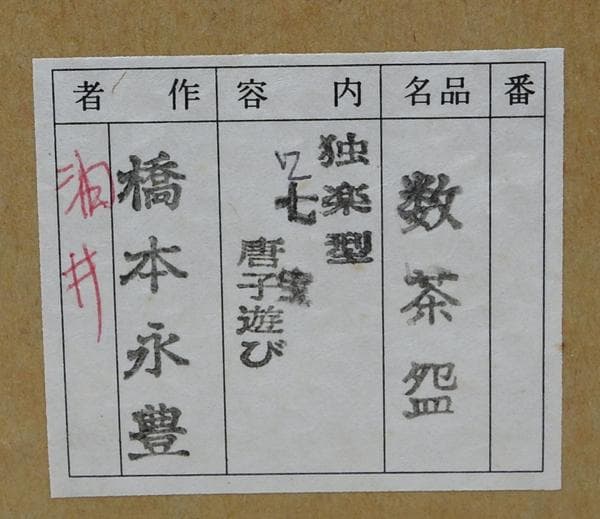 番
品名
数茶盌
内容
独楽型
七
唐子遊び
作者
橋本永豊
油井